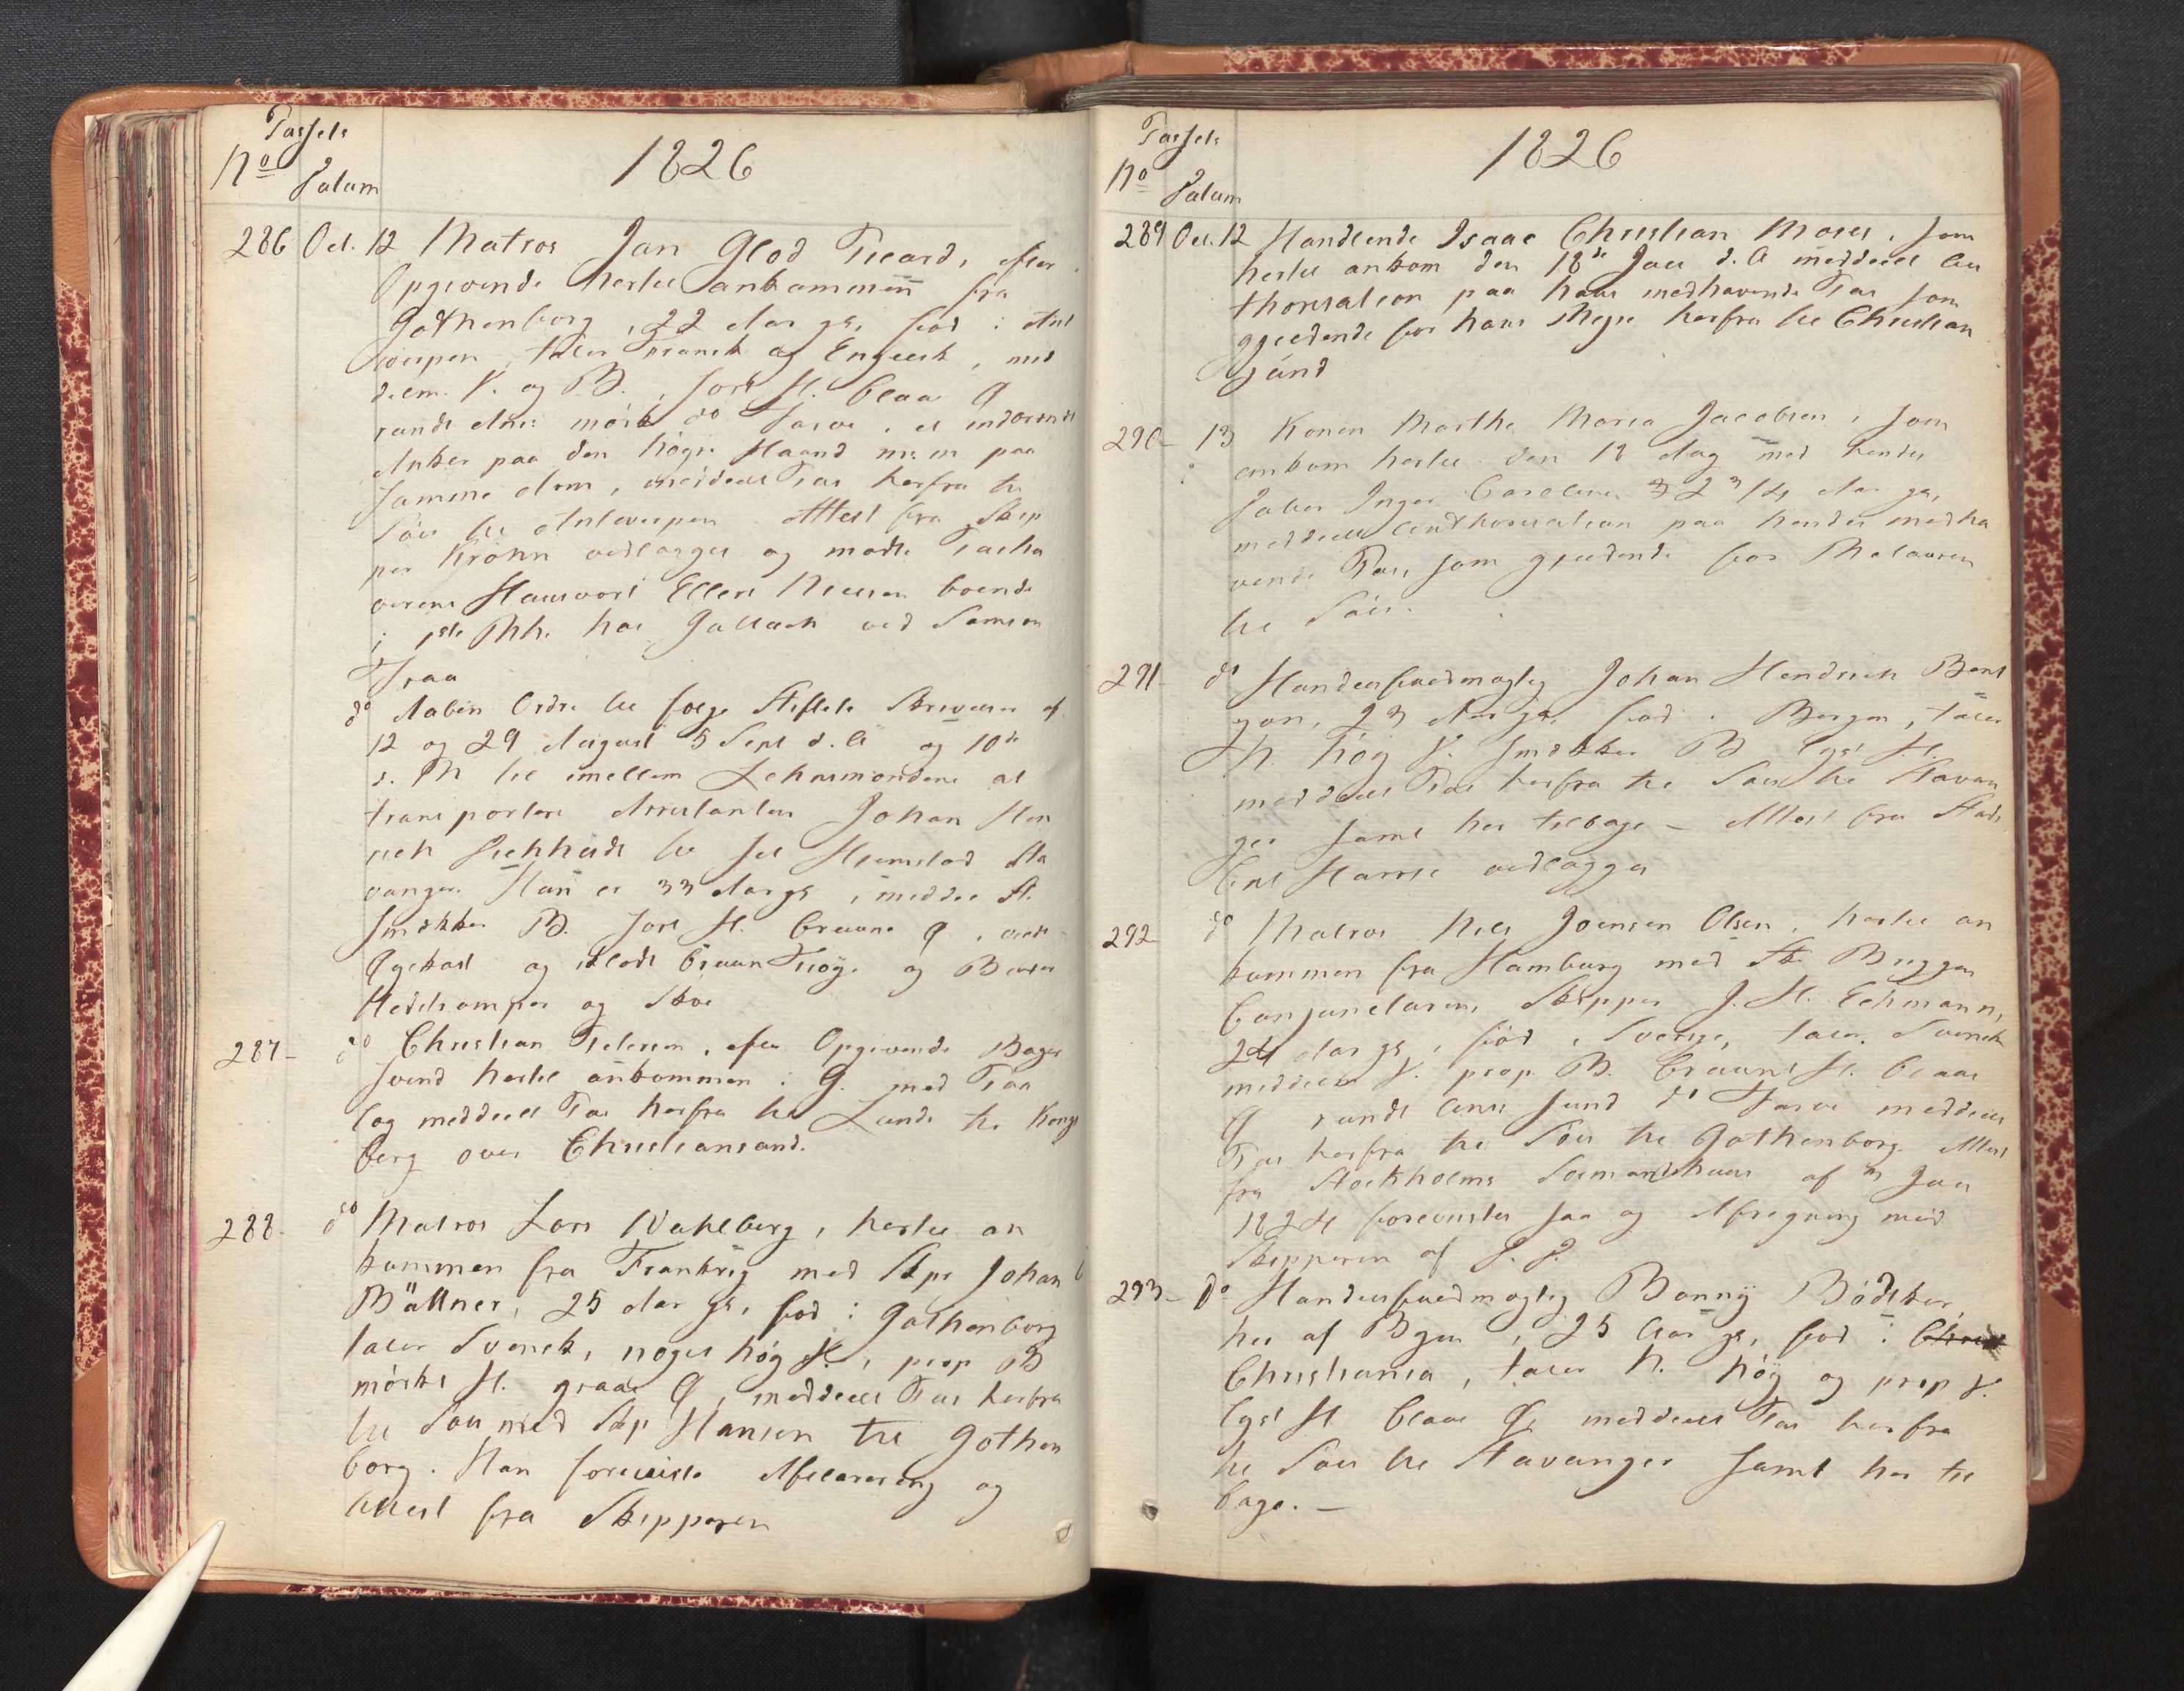 Passets
No Datum
1826
286 Oct. 12 Matros Jan Glod Picard, efter
Opgivende hertil ankommen fra
Gothenborg, 22 Aar gl, fød i Ant
werpen, taler Fransk og Engelsk, med
delm. V. og B., sort H. blaa Ø
rundt Ans: mørk do Farve, et indbrendt
Anker paa den høgre Haand m: m paa
samme Arm, meddeelt Pas herfra til
Søes til Antwerpen Attest fra Skip
per Krohn vedlægges og mødte Pasha
verens Huusvert Ellert Nielsen boende
i 1ste Rhe hos Gullach ved
do Aaben Ordre til følge Stiftets Skrivelser af
12 og 29 August 5 Sept d. A og 10de
d. M til imellem Lehnsmændene at
transportere Arrestanten Johan Hen
rich til sit Hjemstad Sta
vanger Han er 33 Aar gl, middel St.
smekker B. sort H. bruune Ø,
og klædt bruun Trøye og Buxer
og Skoe
287- do Christian Petersen, efter Opgivende Bager
svend hertil ankommen i G. med Paa
log meddeelt Pas herfra til Lands til Kongs
berg over Christiansand.
288- do Matros Lars Wahlberg, hertil an
kommen fra Frankrig med Skpr Johan
Bältner, 25 Aar gl, fød i Gothenborg
taler Svensk, noget høg V., prop B
mørkt H. graae Ø, meddeelt Pas herfra
til Søes med Skp Hansen til Gothen
borg. Han foreviiste Afklarering og
Attest fra Skipperen
Passets
No Datum
1826
289 Oct. 12 Handlende Isaac Christian Moses, som
hertil ankom den 18de Juli d. A meddeelt Au
thorisation paa hans medhavende Pas som
gjeldende for hans Reyse herfra til Christian
sund
290- 13 Konen Marthe Maria Jacobsen, som
ankom hertil den 18 Aug med hendes
Datter Inger Carolina 2 3/4 Aar gl,
meddeelt Authorisation paa hendes medha
vende Pas, som gjeldende for Retouren
til Søes.
291- do Handelsfuldmægtig Johan Hendrich Bent
zon, 23 Aar gl, fød i Bergen, taler
N. høg V. smekker B lyst H.
meddeelt Pas herfra til Søes til Stavan
ger samt her tilbage - Attest fra Stads
Capt Harris vedlægges
292 do Matros Nils Joensen Olsen, hertil an
kommen fra Hamburg med Sk. Briggen
Conjuncturen, Skipper J. H. Echmann,
24 Aar gl, fød i Sverige, taler Svensk
middelm V. prop B. bruunt H. blaae
Ø rundt Ans: sund do Farve meddeelt
Pas herfra til Søes til Gothenborg. Attest
fra Stockholms Sømandshuus af Juli
1824 foreviistes saa og Afregning med
Skipperen af G. D.
293- do Handelsfuldmægtig Bonny Bødtker,
her af Byen, 25 Aar gl, fød i
Christiania, taler N. høy og prop V.
lyst H blaae Ø, meddeelt Pas herfra
til Søes til Stavanger samt her til
bage. -